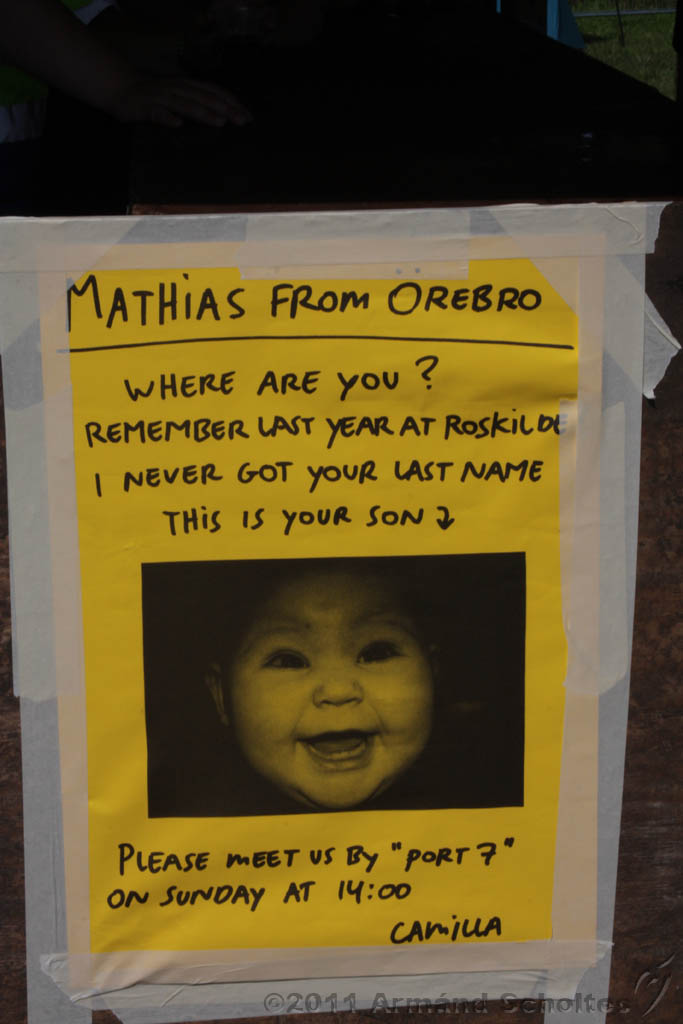 MATHiAS FROM OREBRO
WHERE ARE YOU ?
REMEMBER LAST YEAR AT ROSKILDE
I NEVER GOT YOUR LAST NAME
THiS IS YOUR SON
PLEASE MEET US BY "PORT 7"
ON SUNDAY AT 14:00
CAMiLLA
©2011 Armánd Scholtes